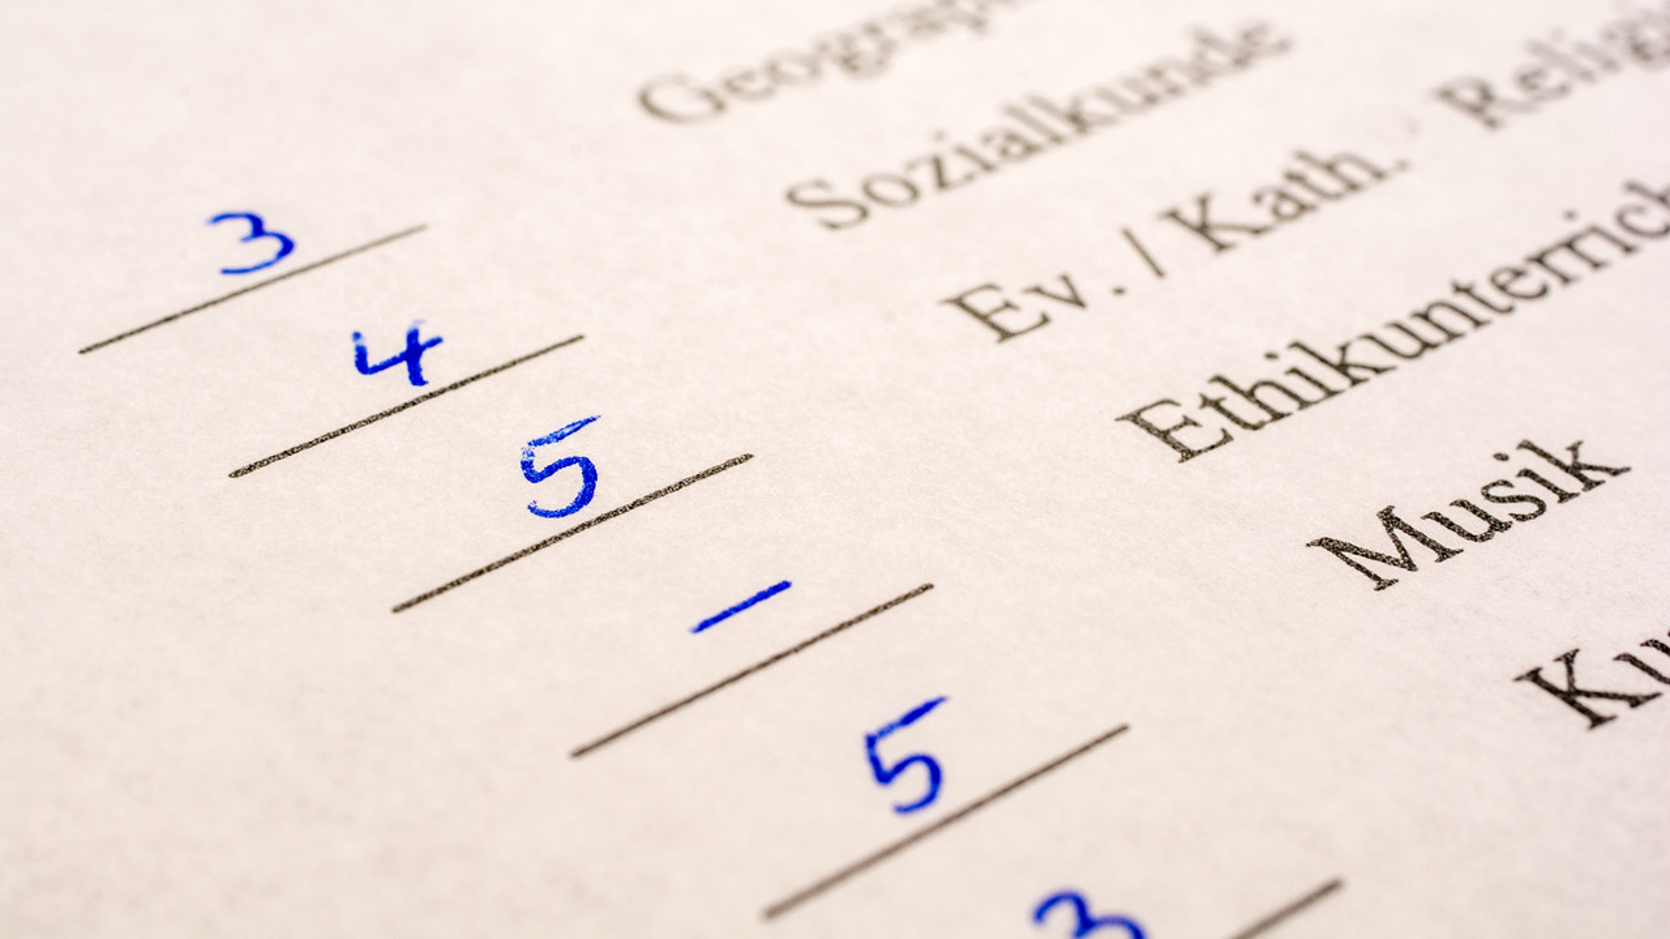 3 Geograp
4 Sozialkunde
5 Ev. / Kath. Religi
– Ethikunterrich
5 Musik
3 Ku